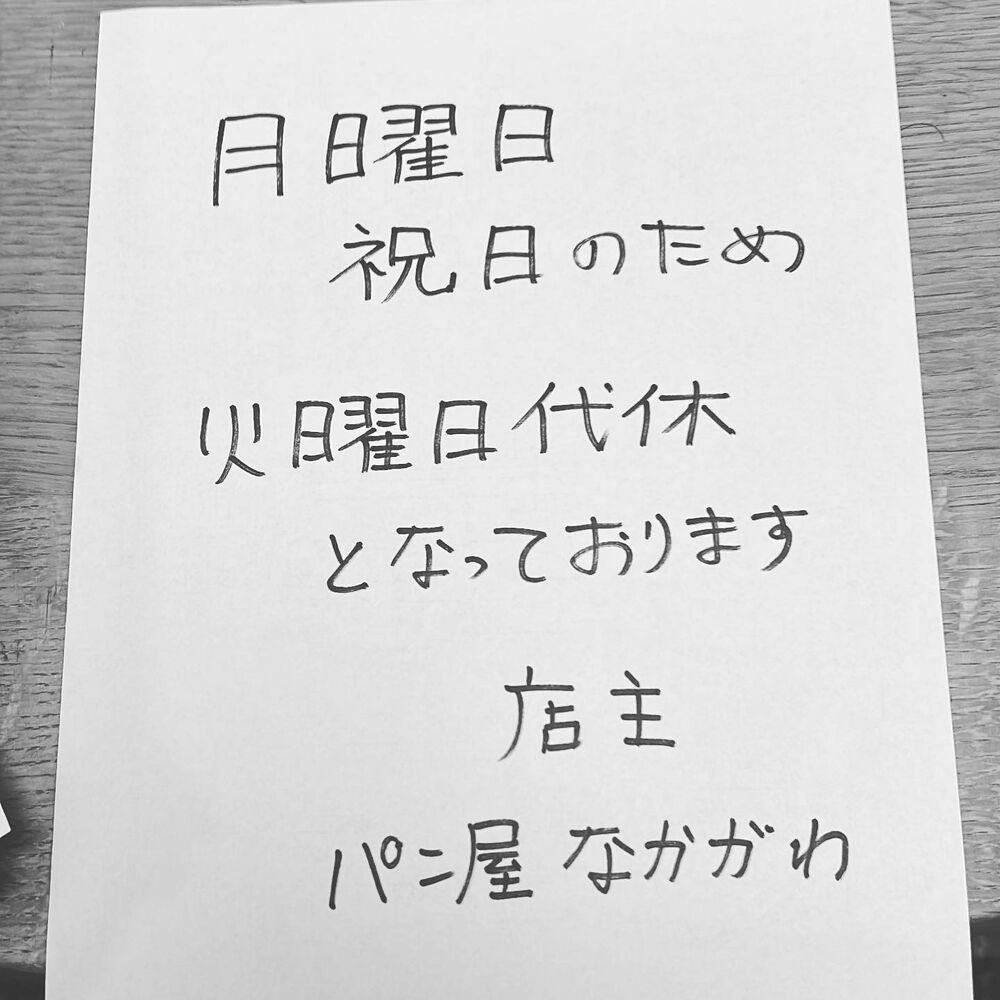 月曜日
祝日のため
火曜日代休
となっております
店主
パン屋 なかがわ